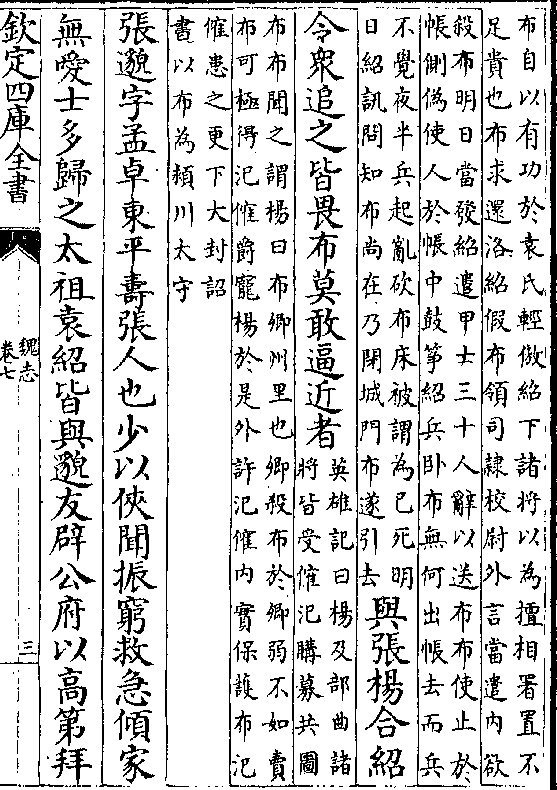 布自以有功於袁氏輕傲紹下諸將以為擅相署置不
足貴也布求還洛紹假布領司隸校尉外言當遣內欲
殺布明日當發紹遣甲士三十人辭以送布布使止於
帳側偽使人於帳中鼓箏紹兵卧布無何出帳去而兵
不覺夜半兵起亂斫布床被謂為已死明
日紹訊問知布尚在乃閉城門布遂引去
與張楊合紹
令衆追之皆畏布莫敢逼近者
英雄記曰楊及部曲諸
將皆受傕汜購募共圖
布布聞之謂楊曰布卿州里也卿殺布於卿弱不如賣
布可極得汜傕爵寵楊於是外許汜傕內實保護布汜
傕患之更下大封詔
書以布為頴川太守
張邈字孟卓東平壽張人也少以俠聞振窮救急傾家
無愛士多歸之太祖袁紹皆與邈友辟公府以高第拜
欽定四庫全書
魏志
卷七
三